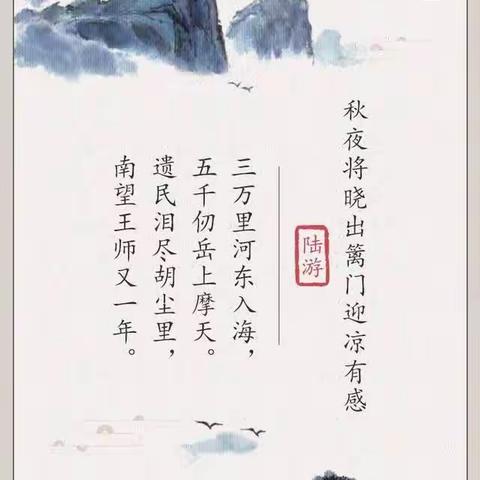 秋夜将晓出篱门迎凉有感
陆游
三万里河东入海，
五千仞岳上摩天。
遗民泪尽胡尘里，
南望王师又一年。